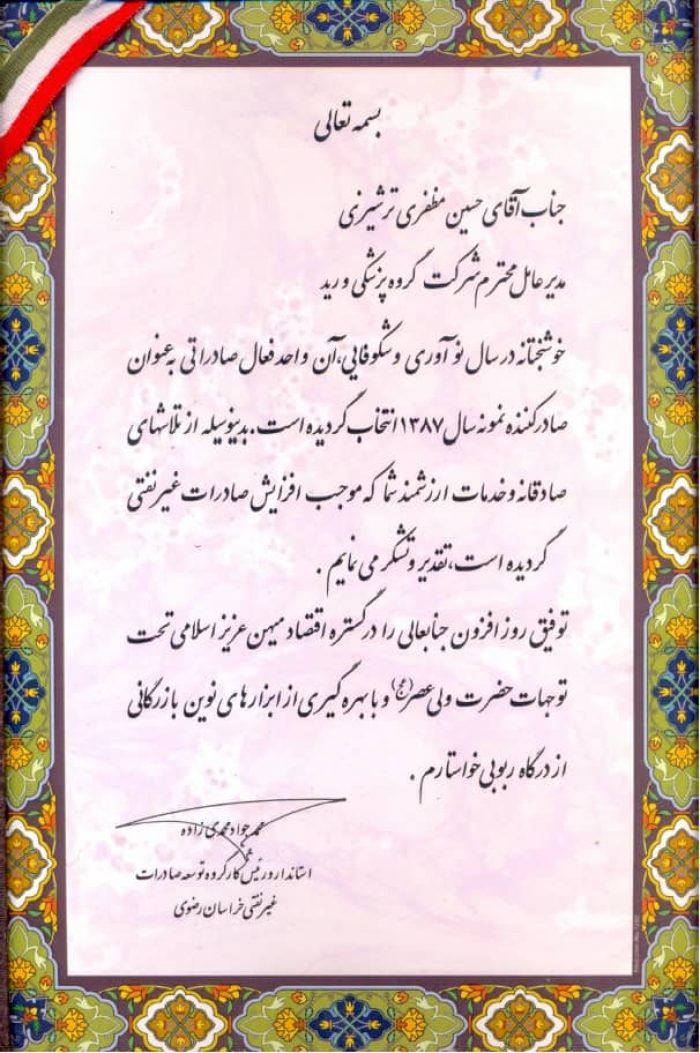 بسمه تعالی
جناب آقای حسین مظفری ترشیزی
مدیر عامل محترم شرکت گروه پزشکی ورید
خوشبختانه در سال نوآوری و شکوفایی، آن واحد فعال صادراتی به عنوان
صادرکننده نمونه سال ۱۳۸۷ انتخاب گردیده است. بدینوسیله از تلاشهای
صادقانه و خدمات ارزشمند شما که موجب افزایش صادرات غیر نفتی
گردیده است، تقدیر و تشکر می نمایم .
توفیق روز افزون جنابعالی را در گستره اقتصاد میهن عزیز اسلامی تحت
توجهات حضرت ولی عصر (عج) و با بهره گیری از ابزارهای نوین بازرگانی
از درگاه ربوبی خواستارم .
محمد جواد محمدی زاده
استاندار و رئیس کارگروه توسعه صادرات
غیر نفتی خراسان رضوی